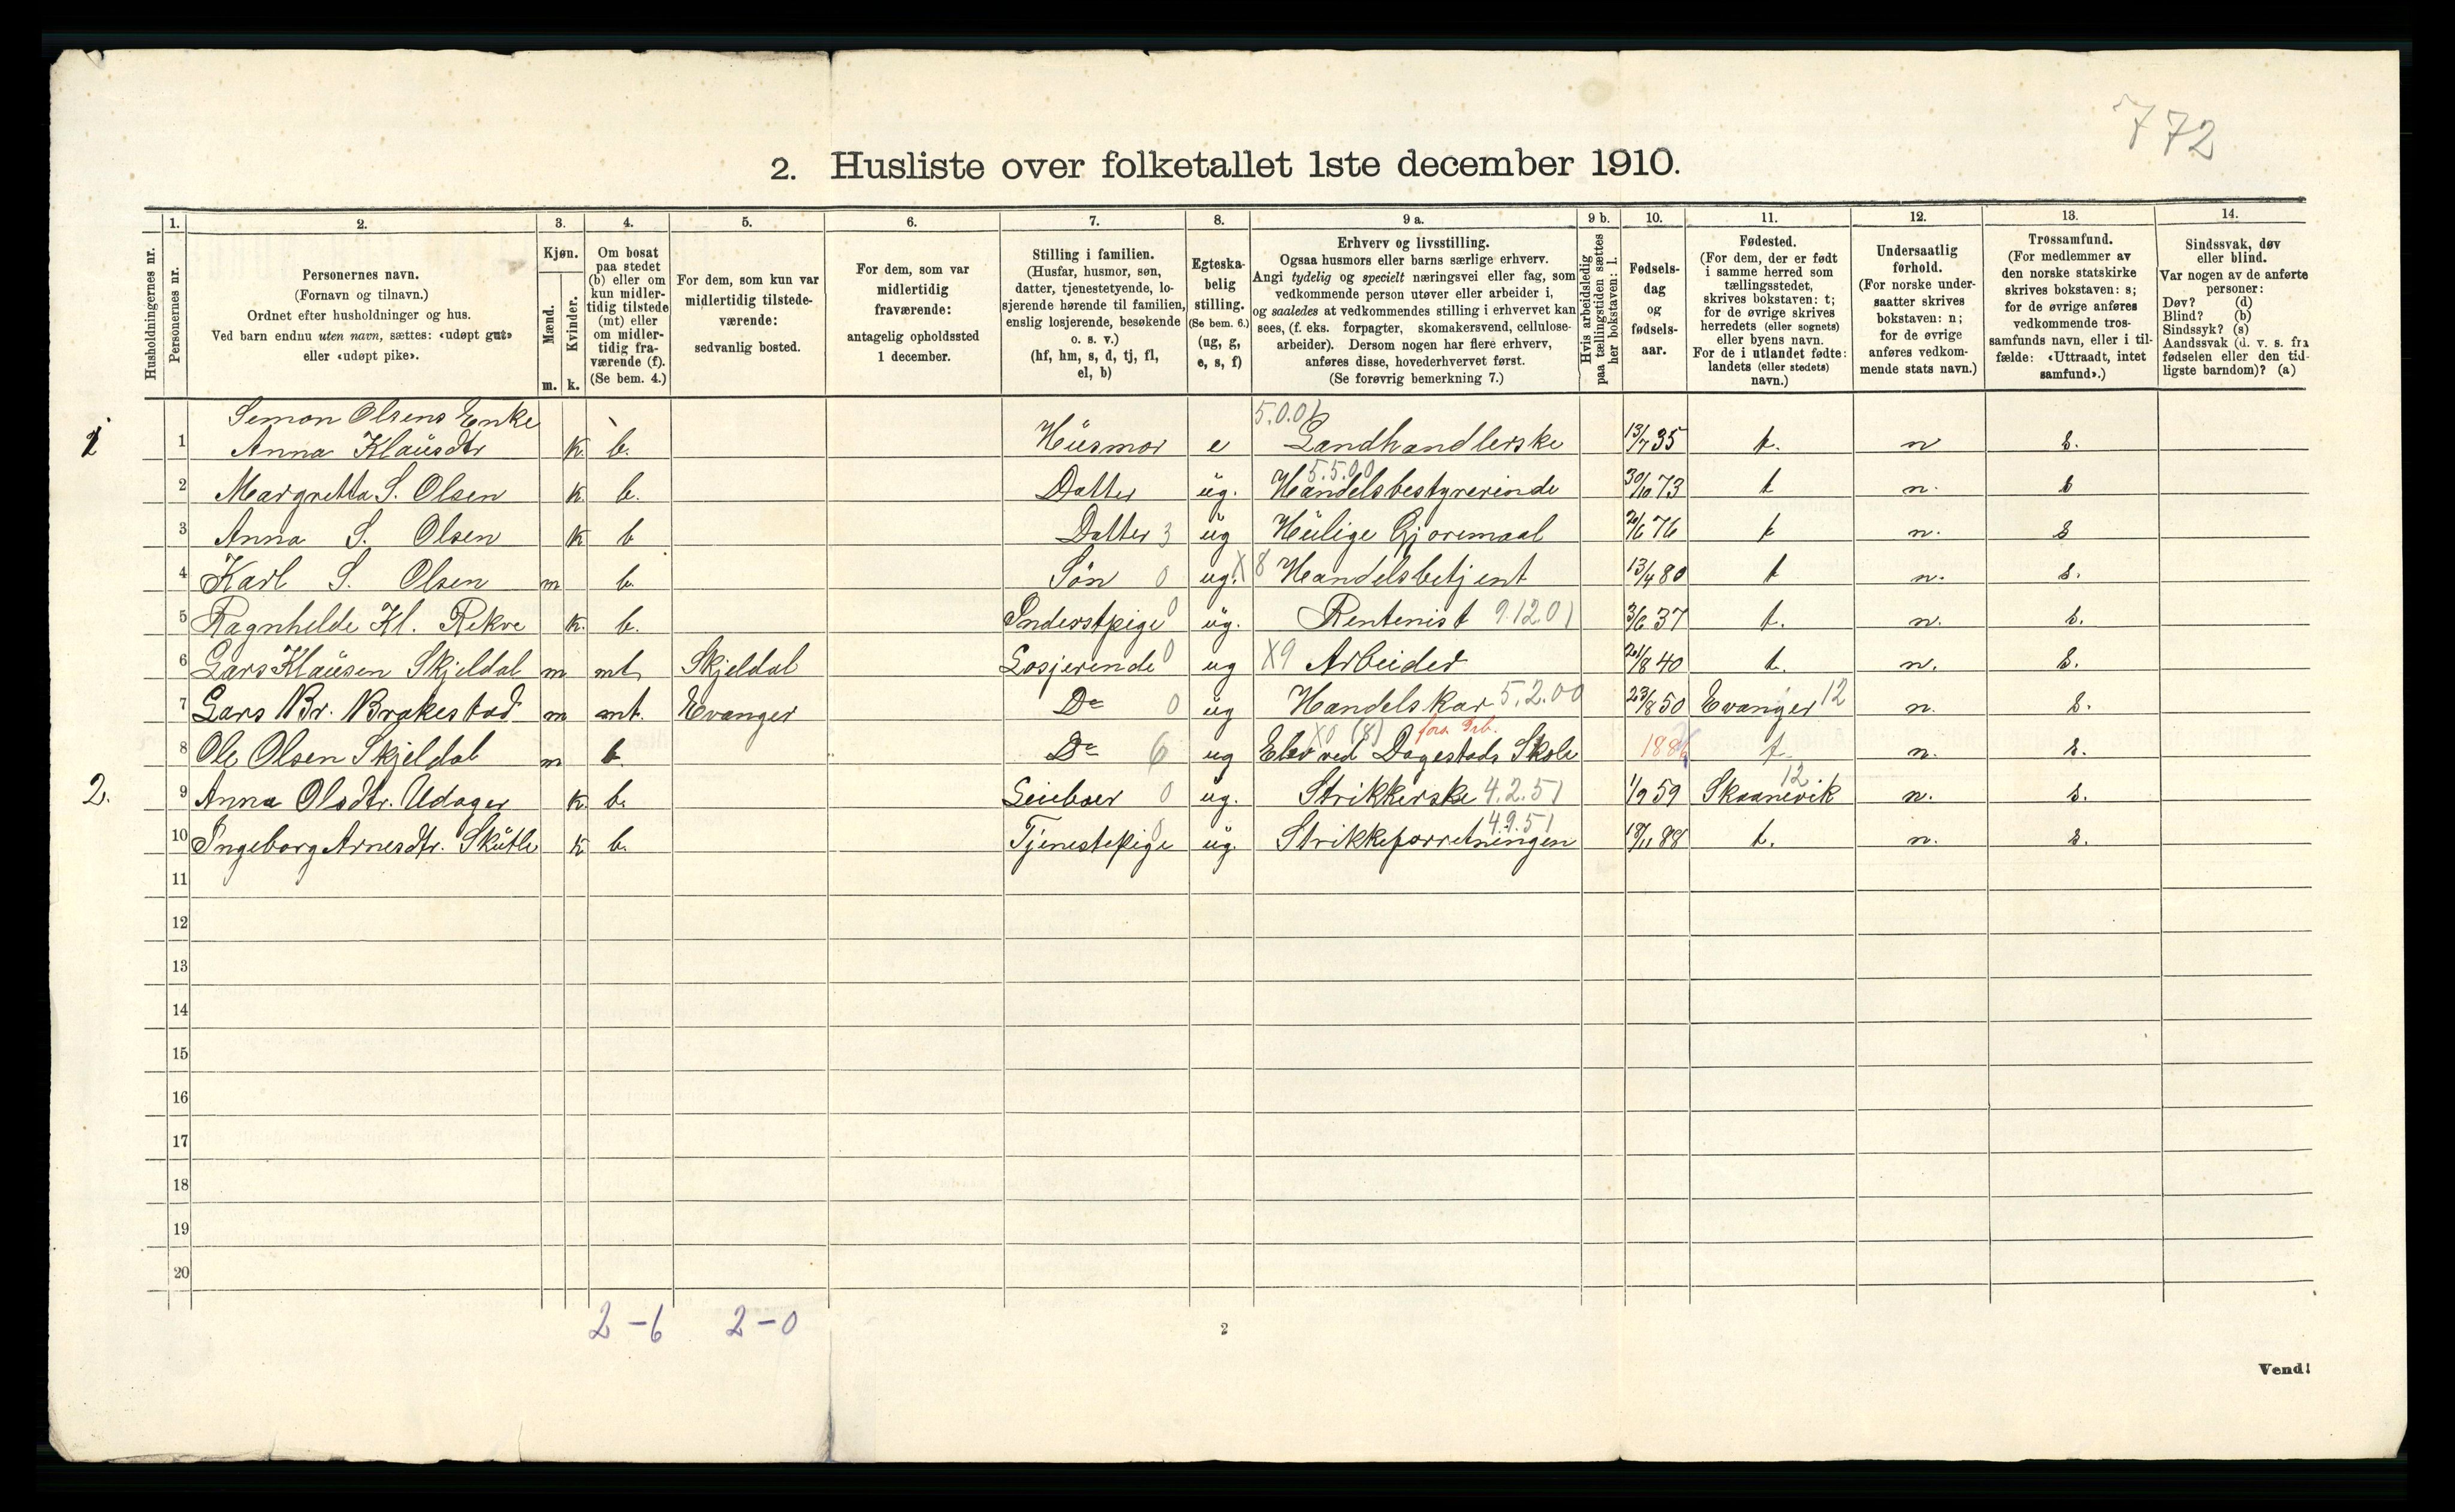 772
2. Husliste over folketallet 1ste december 1910.
1. 2. 3. 4. 5. 6. 7. 8. 9 a. 9 b. 10. 11. 12. 13. 14.
Husholdningernes nr.
Personernes nr.
Personernes navn.
(Fornavn og tilnavn.)
Ordnet efter husholdninger og hus.
Ved barn endnu uten navn, sættes: «udøpt gut»
eller «udøpt pike».
Kjøn.
Mænd.
Kvinder.
m. k.
Om bosat
paa stedet
(b) eller om
kun midler-
tidig tilstede
(mt) eller
om midler-
tidig fra-
værende (f).
(Se bem. 4.)
For dem, som kun var
midlertidig tilstede-
værende:
sedvanlig bosted.
For dem, som var
midlertidig
fraværende:
antagelig opholdssted
1 december.
Stilling i familien.
(Husfar, husmor, søn,
datter, tjenestetyende, lo-
sjerende hørende til familien,
enslig losjerende, besøkende
o. s. v.)
(hf, hm, s, d, tj, fl,
el, b)
Egteska-
belig
stilling.
(Se bem. 6.)
(ug, g,
e, s, f)
Erhverv og livsstilling.
Ogsaa husmors eller barns særlige erhverv.
Angi tydelig og specielt næringsvei eller fag, som
vedkommende person utøver eller arbeider i,
og saaledes at vedkommendes stilling i erhvervet kan
sees, (f. eks. forpagter, skomakersvend, cellulose-
arbeider). Dersom nogen har flere erhverv,
anføres disse, hovederhvervet først.
(Se forøvrig bemerkning 7.)
Hvis arbeidsledig
paa tællingstiden sættes
her bokstaven: l.
Fødsels-
dag
og
fødsels-
aar.
Fødested.
(For dem, der er født
i samme herred som
tællingsstedet,
skrives bokstaven: t;
for de øvrige skrives
herredets (eller sognets)
eller byens navn.
For de i utlandet fødte:
landets (eller stedets)
navn.)
Undersaatlig
forhold.
(For norske under-
saatter skrives
bokstaven: n;
for de øvrige
anføres vedkom-
mende stats navn.)
Trossamfund.
(For medlemmer av
den norske statskirke
skrives bokstaven: s;
for de øvrige anføres
vedkommende tros-
samfunds navn, eller i til-
fælde: «Uttraadt, intet
samfund».)
Sindssvak, døv
eller blind.
Var nogen av de anførte
personer:
Døv? (d)
Blind? (b)
Sindssyk? (s)
Aandssvak (d. v. s. fra
fødselen eller den tid-
ligste barndom)? (a)
Semon Olsens Enke 5.0.0
1 1 Anna Klausdtr k. b. Husmor e Landhandlerske 13/7 35 t. n s.
5.5.00
2 Margretta S. Olsen k. b. Datter ug. Handelsbestyrerinde 30/10 73 t n. s
3 Anna S. Olsen k b Datter 3 ug Huslige Gjøremaal 76 t n. s
4 Karl S. Olsen m b. Søn 0 ug. X 8 Handelsbetjent 13/4 80 t n. s.
5 Ragnhelde Kl. Rekve k. b. Inderstpige 0 ug. Rentenist 9.12.01 3/6 37 t. n. s.
6 Lars Klausen Skjeldal m mt. Skjeldal Losjerende 0 ug X9 Arbeider 21/8 40 t. n. s.
7 Lars Br. Brakestad m mt. Evanger Do 0 ug Handelskar 5.2.00 23/8 50 Evanger 12 n. s.
X0 (8)
8 Ole Olsen Skjeldal m b Do 6 ug Elev ved Dagestads Skole t n. s.
12
2. 9 Anna Olsdtr. Udager k. b. Leieboer 0 ug. Strikkerske 4.2.51 1/9 59 Skaanevik n. s.
0 4.9.51
10 Ingeborg Arnesdtr. Skutle k b. Tjenestepige ug. Strikkeforretningen 88 t. n. s.
11
12
13
14
15
16
17
18
19
20
2-6 2-0
2
Vend!